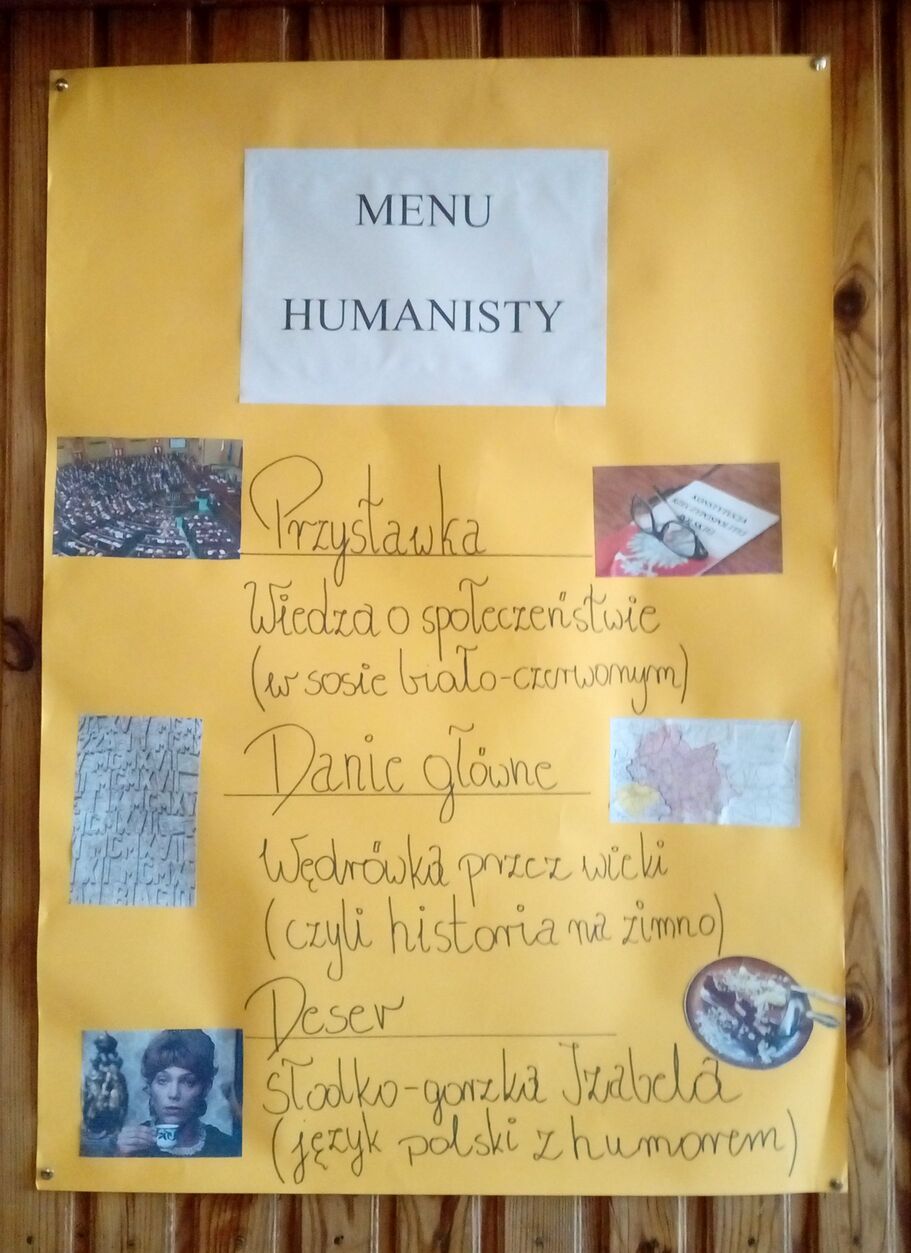 MENU
HUMANISTY
Przystawka
Wiedza o społeczeństwie
(w sosie biało-czerwonym)
Danie główne
Wędrówka przez wieki
(czyli historia na zimno)
Deser
słodko-gorzka Izabela
(język polski z humorem)